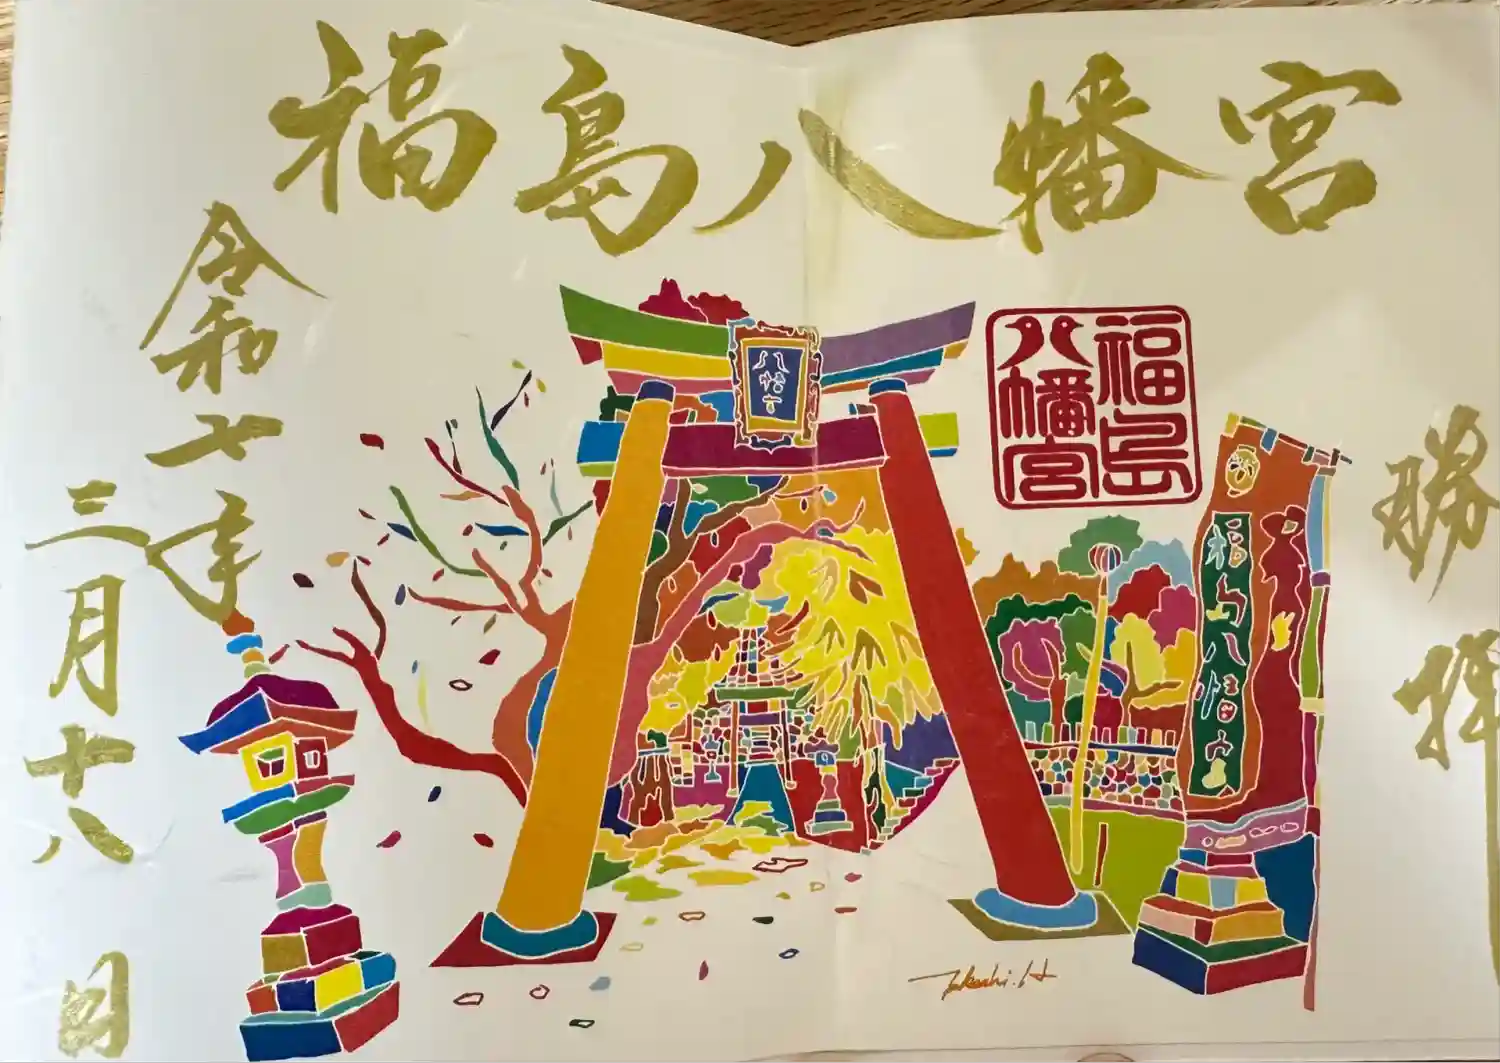 福島八幡宮
勝拝
令和七年
三月十八日
八幡宮
福島
八幡宮
福島八幡宮
Takashi.H